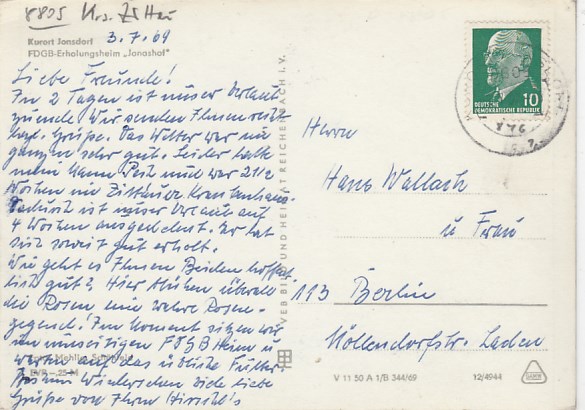 8805 Krs. Zittau
3.7.69
Kurort Jonsdorf
FDGB-Erholungsheim „Jonashof"
Liebe Freunde!
In 2 Tagen ist unser Urlaub
zu Ende. Wir senden Ihnen recht
herzl. Grüße. Das Wetter war im
ganzen sehr gut. Leider hatte
mein Mann Pech und war 2 1/2
Wochen im Zittauer Krankenhaus.
Dadurch ist unser Urlaub auf
4 Wochen ausgedehnt. Er hat
sich soweit gut erholt.
Wie geht es Ihnen Beiden hoffent-
lich gut? Hier blühen überall
die Rosen eine wahre Rosen-
gegend! Im Moment sitzen wir
im FDGB Heim u
warten auf das übliche Futter.
Auf Wiedersehen viele liebe
Grüße von Ihren
VEB BILD UND HEIMAT REICHENBACH I. V.
DEUTSCHE
DEMOKRATISCHE REPUBLIK
10
Herrn
Hans Wallach
u Frau
113 Berlin
Möllendorfstr. Laden
V 11 50 A 1/B 344/69
12/4944